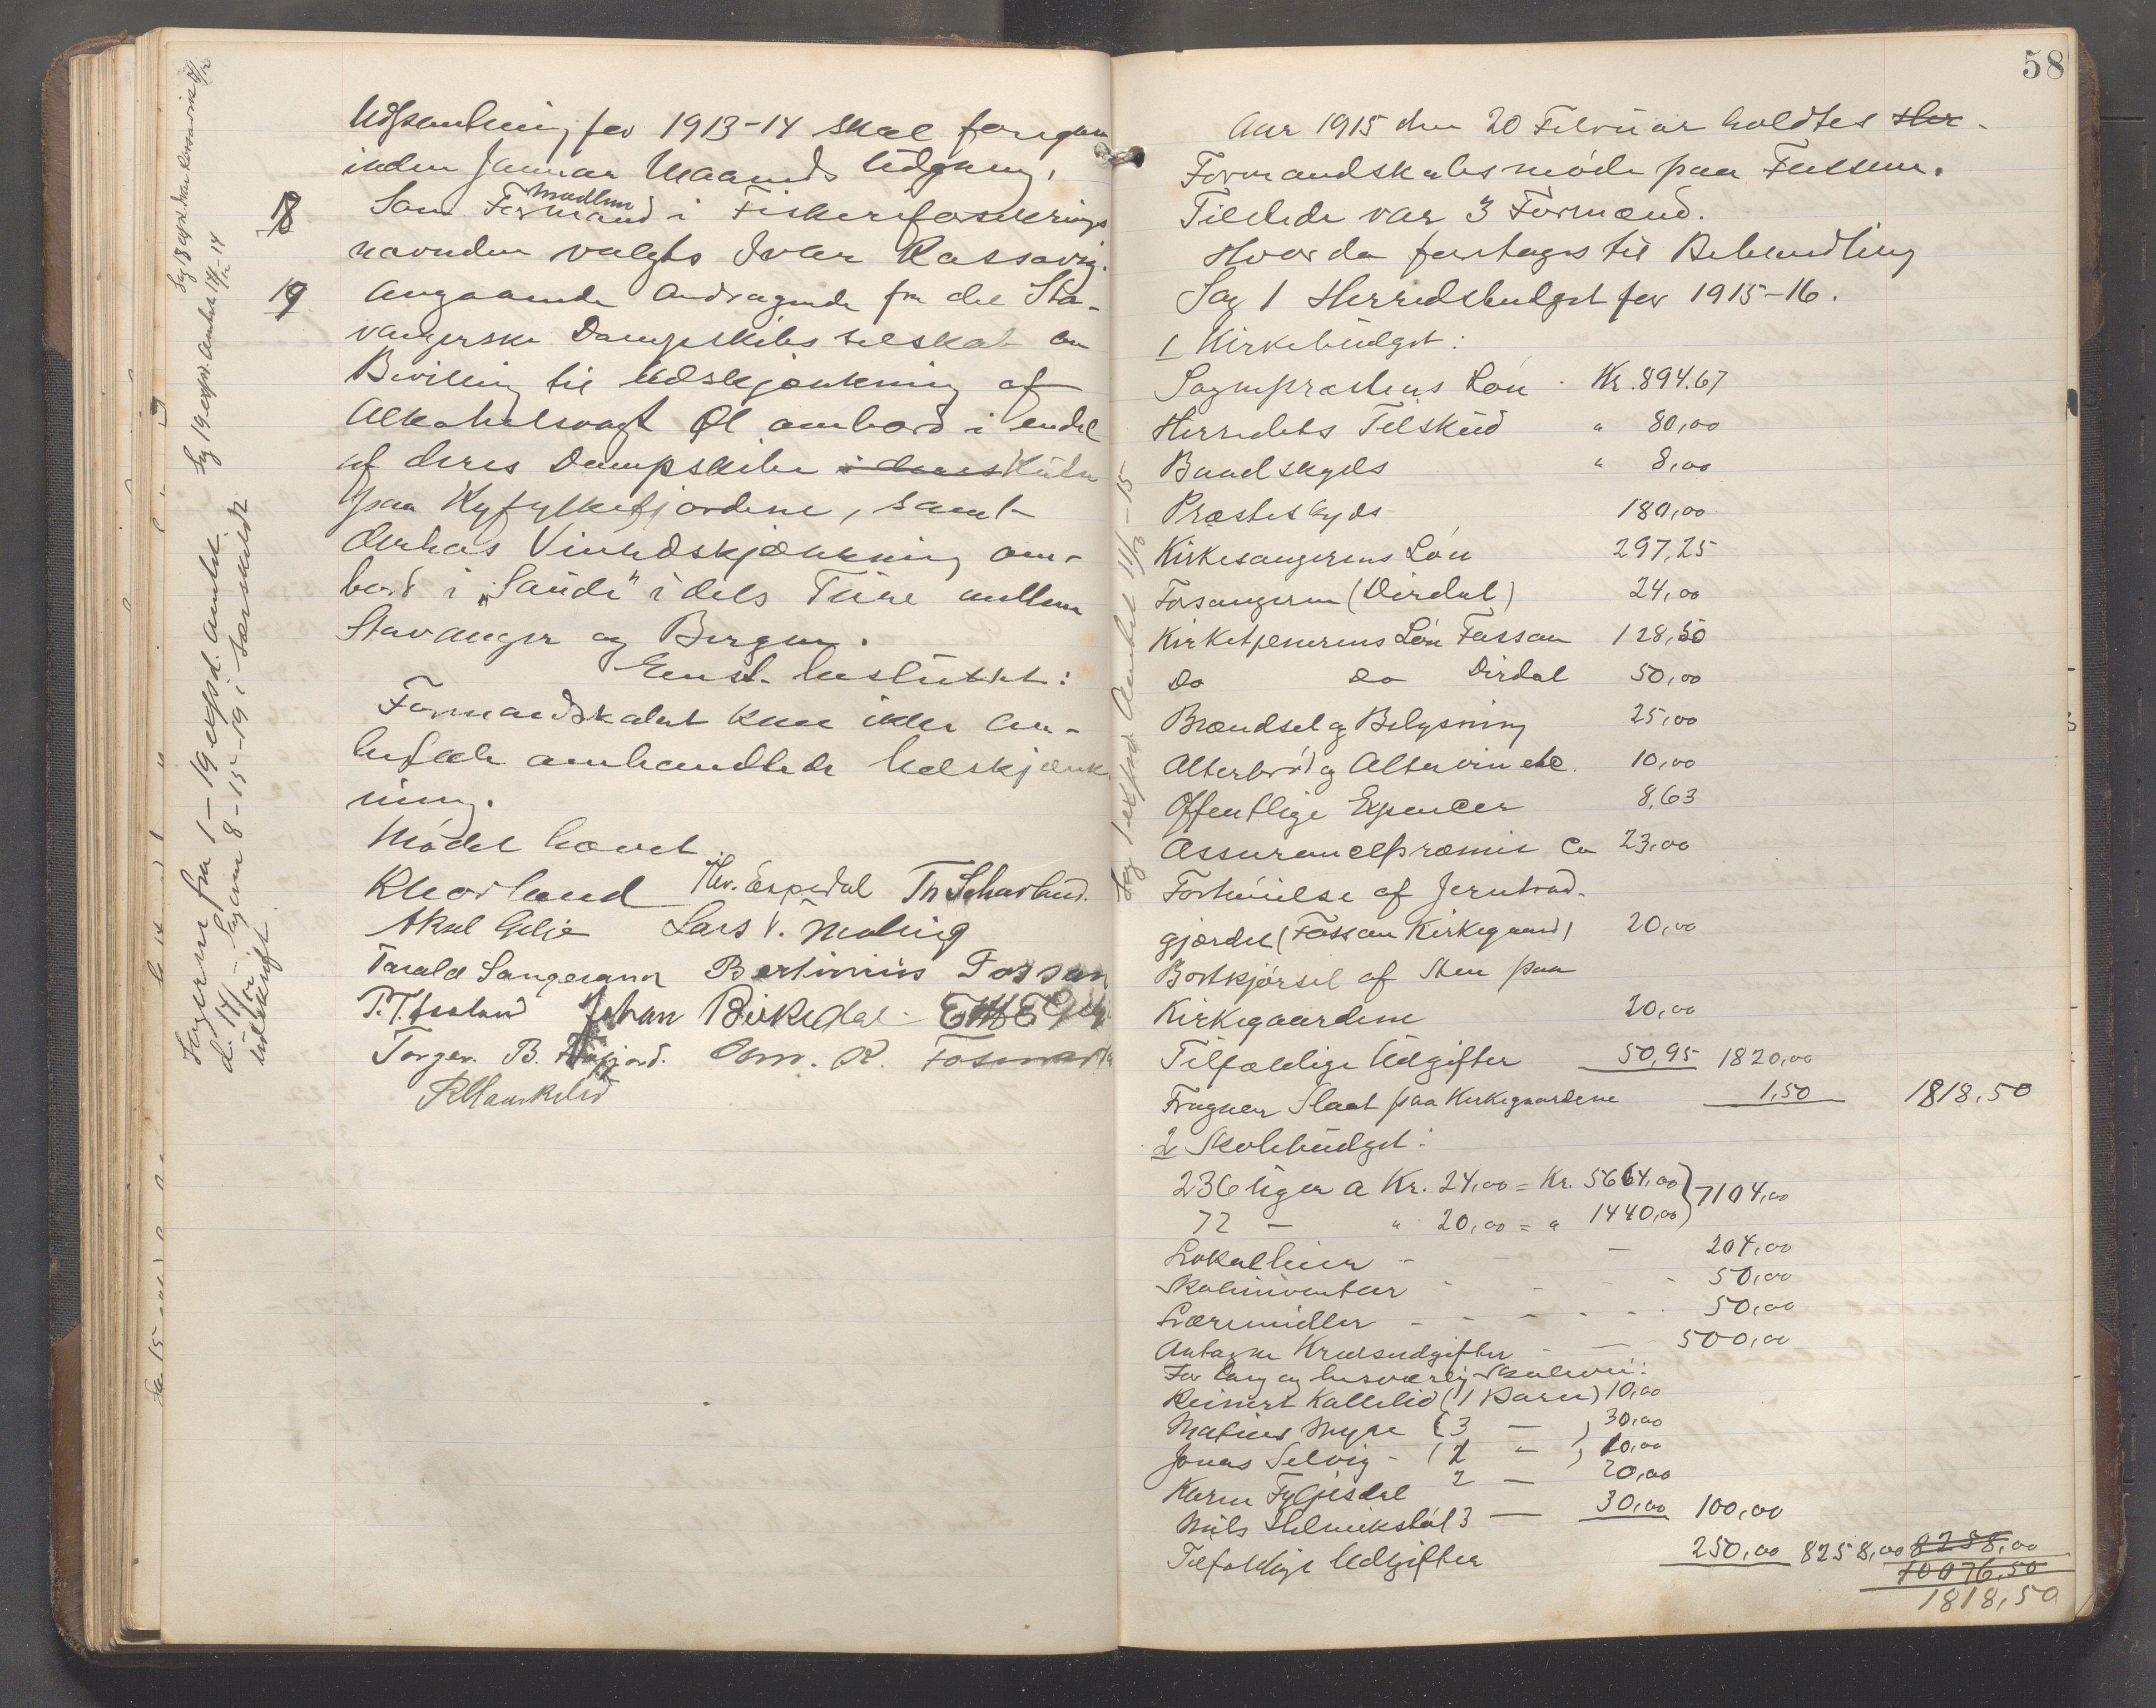 Udskrivning for 1913-14 skal foregaa
inden Januar Maaneds Udgang.
18 Som Formand medlem i Fiskeriforsikrings
nævnden valgtes Ivar Rossavig.
19 Angaaende Andragende fra det Sta-
vangerske Dampskibsselskab om
Bevilling til Udskjænkning af
Alkoholsvagt Øl ombord i endel
af deres Dampskibe i deres Ruter
paa Ryfylkefjordene, samt
derhos Vinudskjænkning om-
bord i "Sauda" i dets Ture mellem
Stavanger og Bergen.
Enst. besluttet:
Formandskabet kan ikke an-
befale omhandlede Udskjænk-
ning.
Mødet hævet.
R Norland Thv. Espedal Th Schavland.
Aksel Gilje Lars V. Maleig
Torald Langevann Bertinius Fossan
P. T. Frøland Johan Birkedal
Torger B. Frafjord. Om. R. Fosmark
R Hauskelid
Sagerne fra 1-19 expd. amtet
Sagerne 8-15-19 i særskildt
Udskrift
Sag 19 exp. Amtet 14/12-14
58
Aar 1915 den 20 Februar holdtes Her-
Formandskabsmøde paa Fossan.
Tilstede var 3 Formænd.
Hvor da foretoges til Behandling
Sag 1 Herredsbudget for 1915-16.
Sag 1 expd. Amtet 11/10-15
1 Kirkebudget:
Sognepræstens Løn Kr. 894.67
Herredets Tilskud " 80,00
Baadskyds " 8,00
Præsteskyds 180,00
Kirkesangerens Løn 297,25
Forsangeren (Dirdal) 24,00
Kirketjenerens Løn Fossan 128,50
Do Do Dirdal 50,00
Brændsel og Belysning 25,00
Alterbrød og Altervin etc. 10,00
Offentlige Expencer 8,63
Assurancepræmie Ca 23,00
Forhøielse af Jerntraad-
gjærdet (Fossan Kirkegaard) 20,00
Bortkjørsel af Sten paa
Kirkegaardene 20,00
Tilfældige Udgifter 50,95 1820,00
Fragaar Slaat paa Kirkegaardene 1,50 1818,50
2 Skolebudget:
236 Uger a Kr. 24,00 = Kr. 5664,00 } 7104,00
72 — " 20,00 = " 1440,00
Lokalleier - — 204,00
Skoleinventar - - - 50,00
Læremidler - - - - 50,00
Antagne Kredsudgifter - — 500,00
For lang og besværlig Skolevei:
Reinert Kallelid (1 Barn) 10,00
Matias Myre (3 — ) 30,00
Jonas Selvig - (1 " ) 10,00
Karen Fylgjesdal 2 — 20,00
Nils Helmikstøl 3 — 30,00 100,00
Tilfældige Udgifter 250,00 8258,00 8258,00
10076,50
1818,50